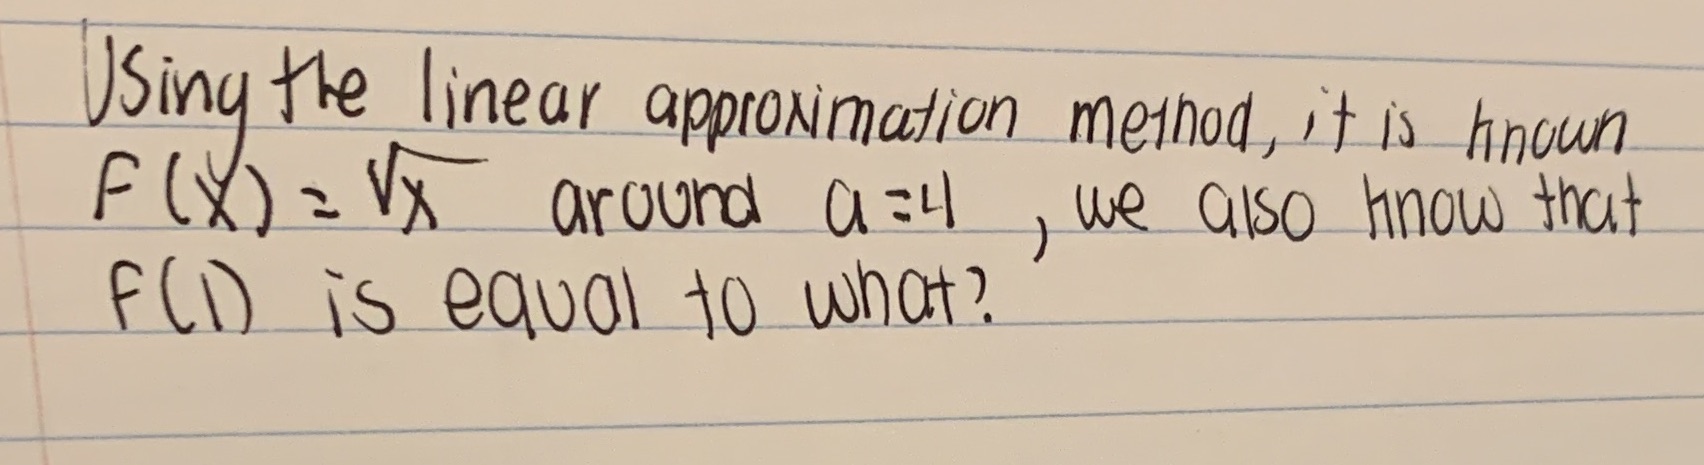 Using the linear approximation method, it is known
F(x) = √x around a=4, we also know that
F(1) is equal to what?